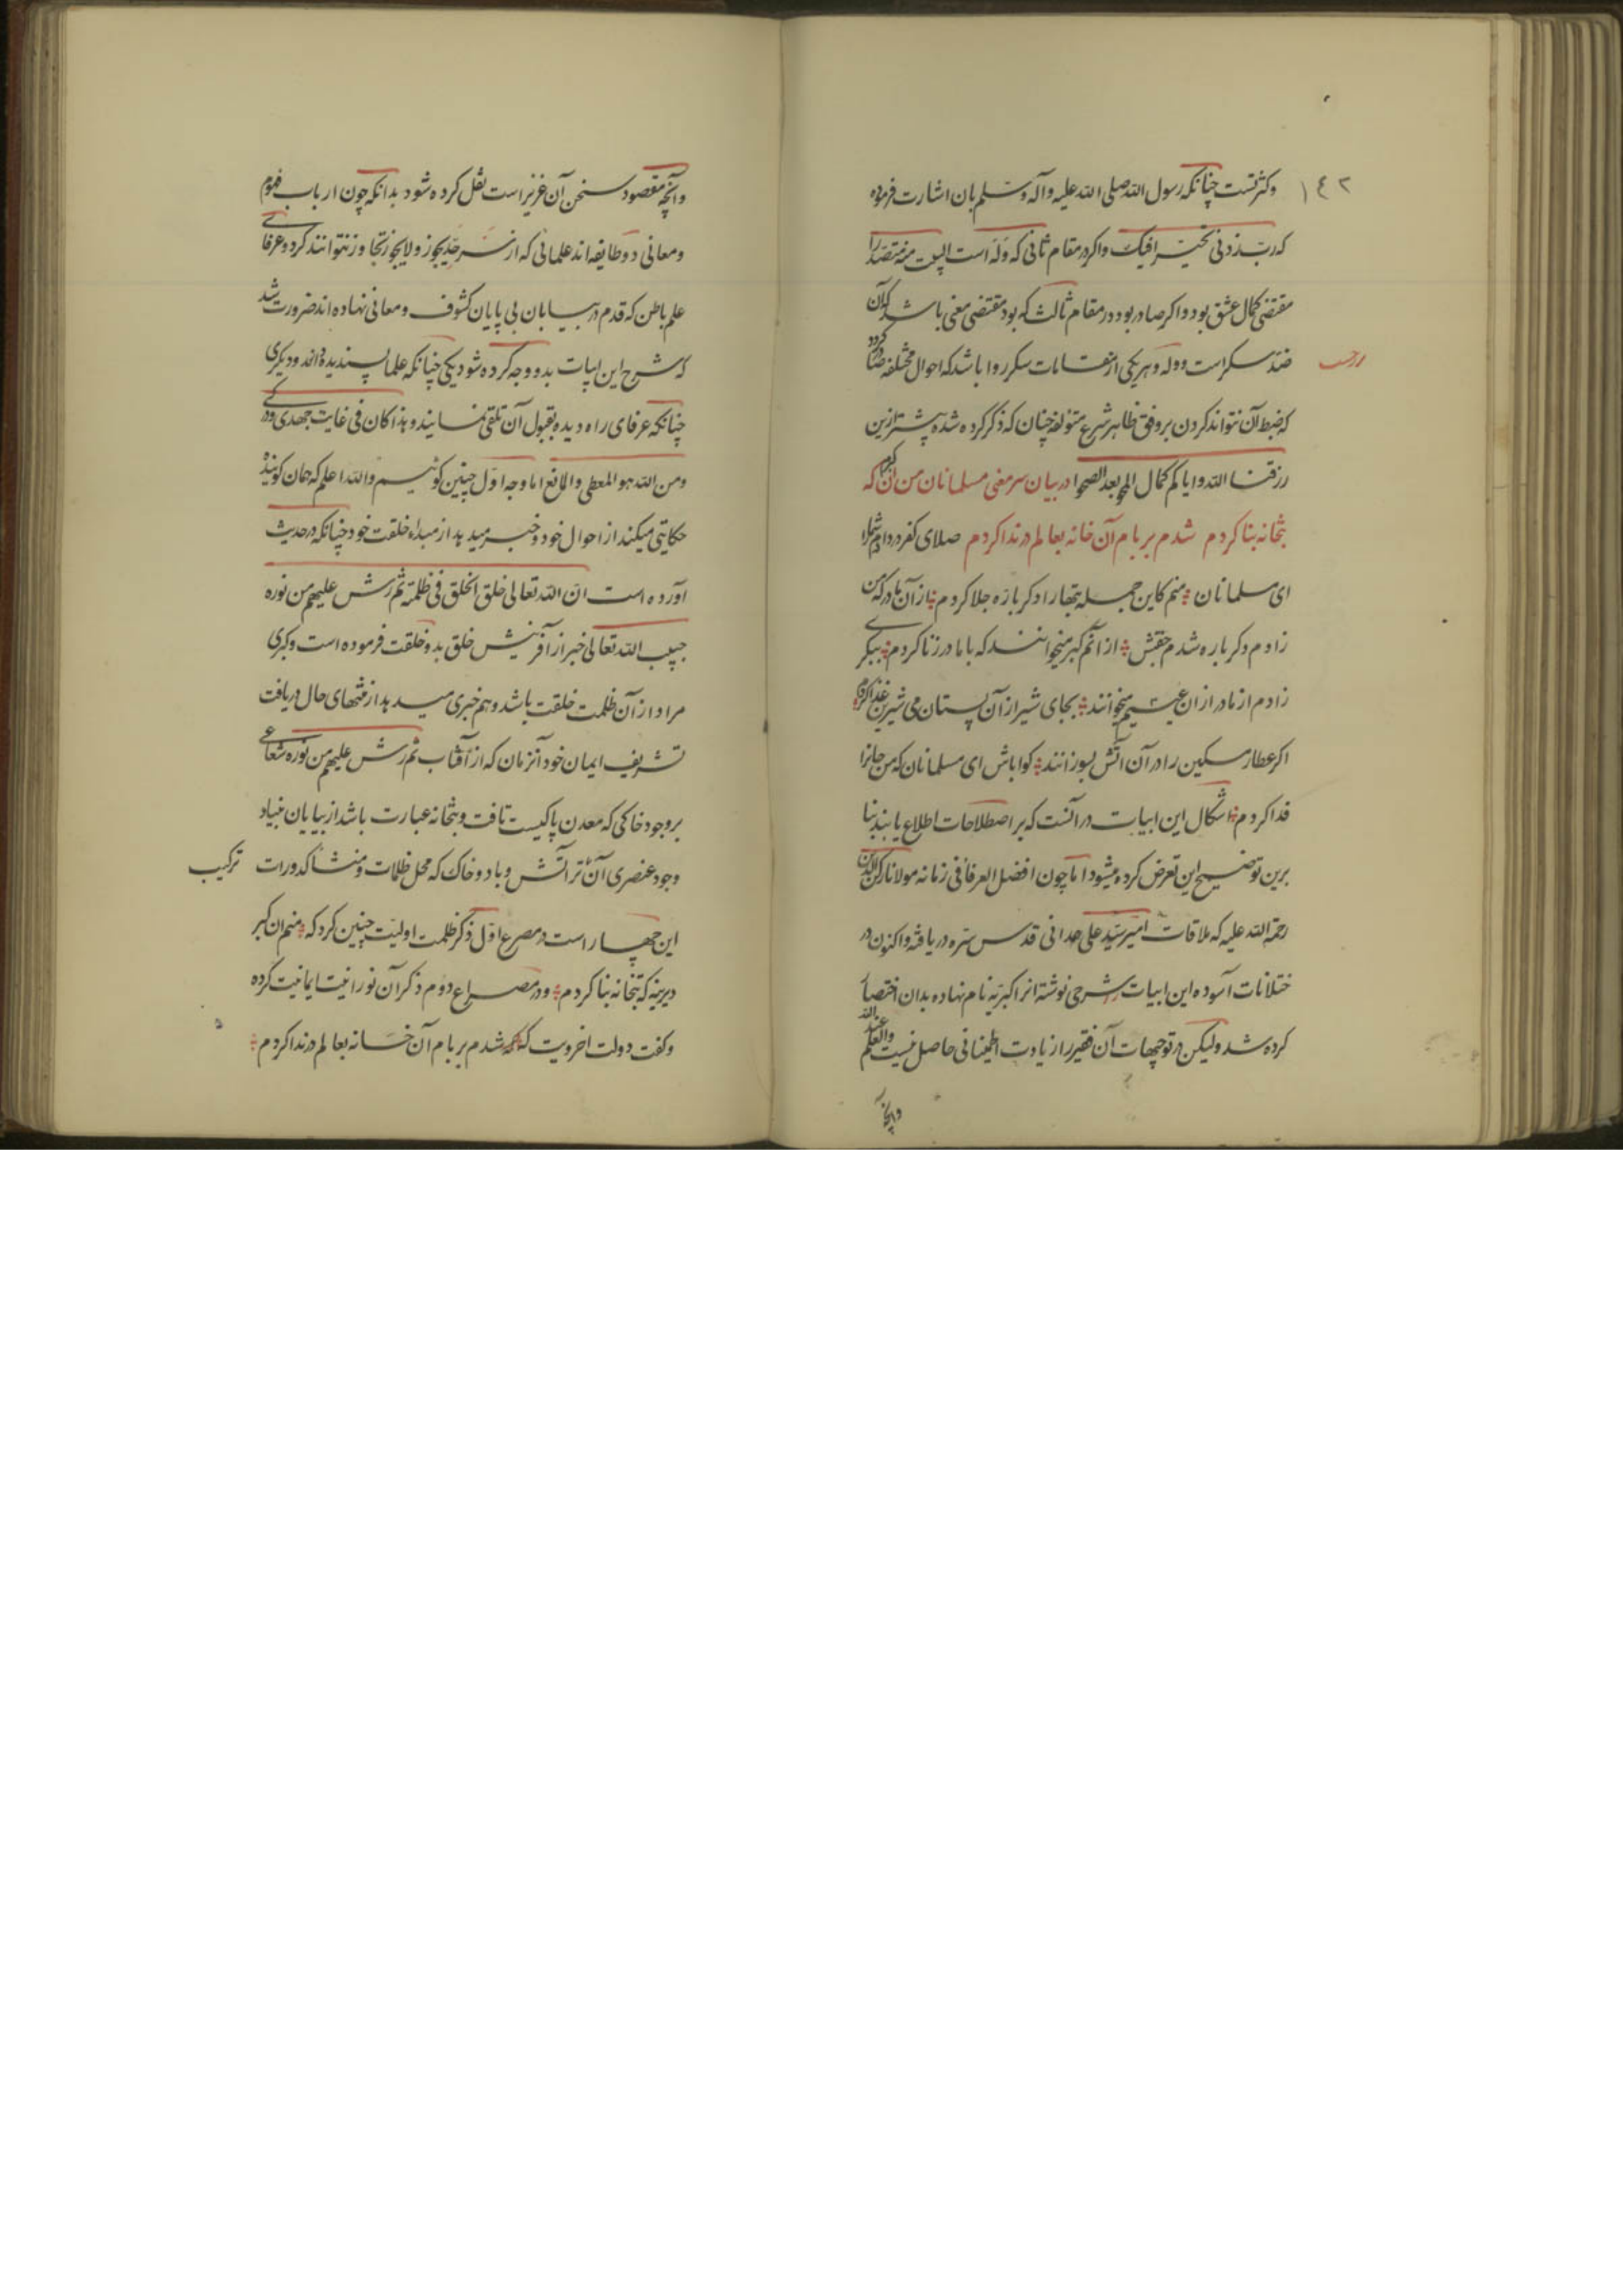 ١٤٢
وکثرتست چنانکه رسول الله صلی الله علیه وآله وسلم بان اشارت فرموده
که رب زدنی تحیرا فیک واکر در مقام ثانی که وله است
مقتضی کمال عشق بود واکر صادر بود در مقام ثالث که بود مقتضی معنی باشد که آن
ضد سکر است ووله وهر یکی از مقامات سکر روا باشد که احوال مختلفه
که ضبط آن نتواند کردن بر وفق ظاهر شرع چنان که ذکر کرده شده پیشتر ازین
رزقنا الله وایاکم کمال المحو بعد الصحو در بیان سر معنی مسلمانان من آن کبرم که
بتخانه بنا کردم شدم بر بام آن خانه بعالم در ندا کردم صلای کفر در دادم شما را
ای مسلمانان منم کاین جمله بتها را دکر باره جلا کردم از آن مادر که من
زادم دکر باره شدم جفتش از انم کبر میخوانند که با مادر زنا کردم ببکری
زادم از مادر از ان عیسیم میخوانند بجای شیر از آن پستان می شیرین غذا کردم
اکر عطار مسکین را در آن آتش بسوزانند کوا باش ای مسلمانان که من جانرا
فدا کردم اشکال این ابیات در آنست که بر اصطلاحات اطلاع یابند بنا
برین توضیح این تعرض کرده میشود اما چون افضل العرفا فی زمانه مولانا رکن الدین
رحمة الله علیه که ملاقات امیر سید علی همدانی قدس سره دریافته واکنون در
ختلانات آسوده این ابیات شرحی نوشته انرا اکبریه نام نهاده بدان اختصار
کرده شد ولیکن در توجیهات آن فقیر را زیادت اطمینانی حاصل نیست والعلم عند الله
وانچه
وانچه مقصود سخن آن عزیز است نقل کرده شود بدانکه چون ارباب فهوم
ومعانی دو طایفه اند علمائی که از سر حد یجوز ولا یجوز تجاوز نتوانند کرد وعرفای
علم باطن که قدم در بیابان بی پایان کشوف ومعانی نهاده اند ضرورت شد
که شرح این ابیات بدو وجه کرده شود یکی چنانکه علما پسندیده دانند ودیکری
چنانکه عرفای راه دیده بقبول آن تلقی نمایند وهذا کان فی غایت جهدی
ومن الله هو المعطی والمانع اما وجه اول چنین کوئیم والله اعلم که همان کوینده
حکایتی میکند از احوال خود وخبر میدهد از مبداء خلقت خود چنانکه در حدیث
آورده است ان الله تعالی خلق الخلق فی ظلمة ثم رش علیهم من نوره
حبیب الله تعالی خبر از آفرینش خلق بدو خلقت فرموده است وکبری
مراد از آن ظلمت خلقت باشد وهم خبری میدهد از حال دریافت
تشریف ایمان خود آنزمان که از آفتاب ثم رش علیهم من نوره شعاعی
بر وجود خاکی که معدن پاکیست تافت وبتخانه عبارت باشد از بنیاد
وجود عنصری آن تر آتش وباد وخاک که محل ظلمات ومنشا کدورات ترکیب
این چهار است در مصرع اول ذکر ظلمت اولیت چنین کرد که منم ان کبر
دیرینه که بتخانه بنا کردم ودر مصراع دوم ذکر آن نورانیت ایمانیت کرده
وکفت دولت اخرویت که شدم بر بام آن خانه بعالم در ندا کردم